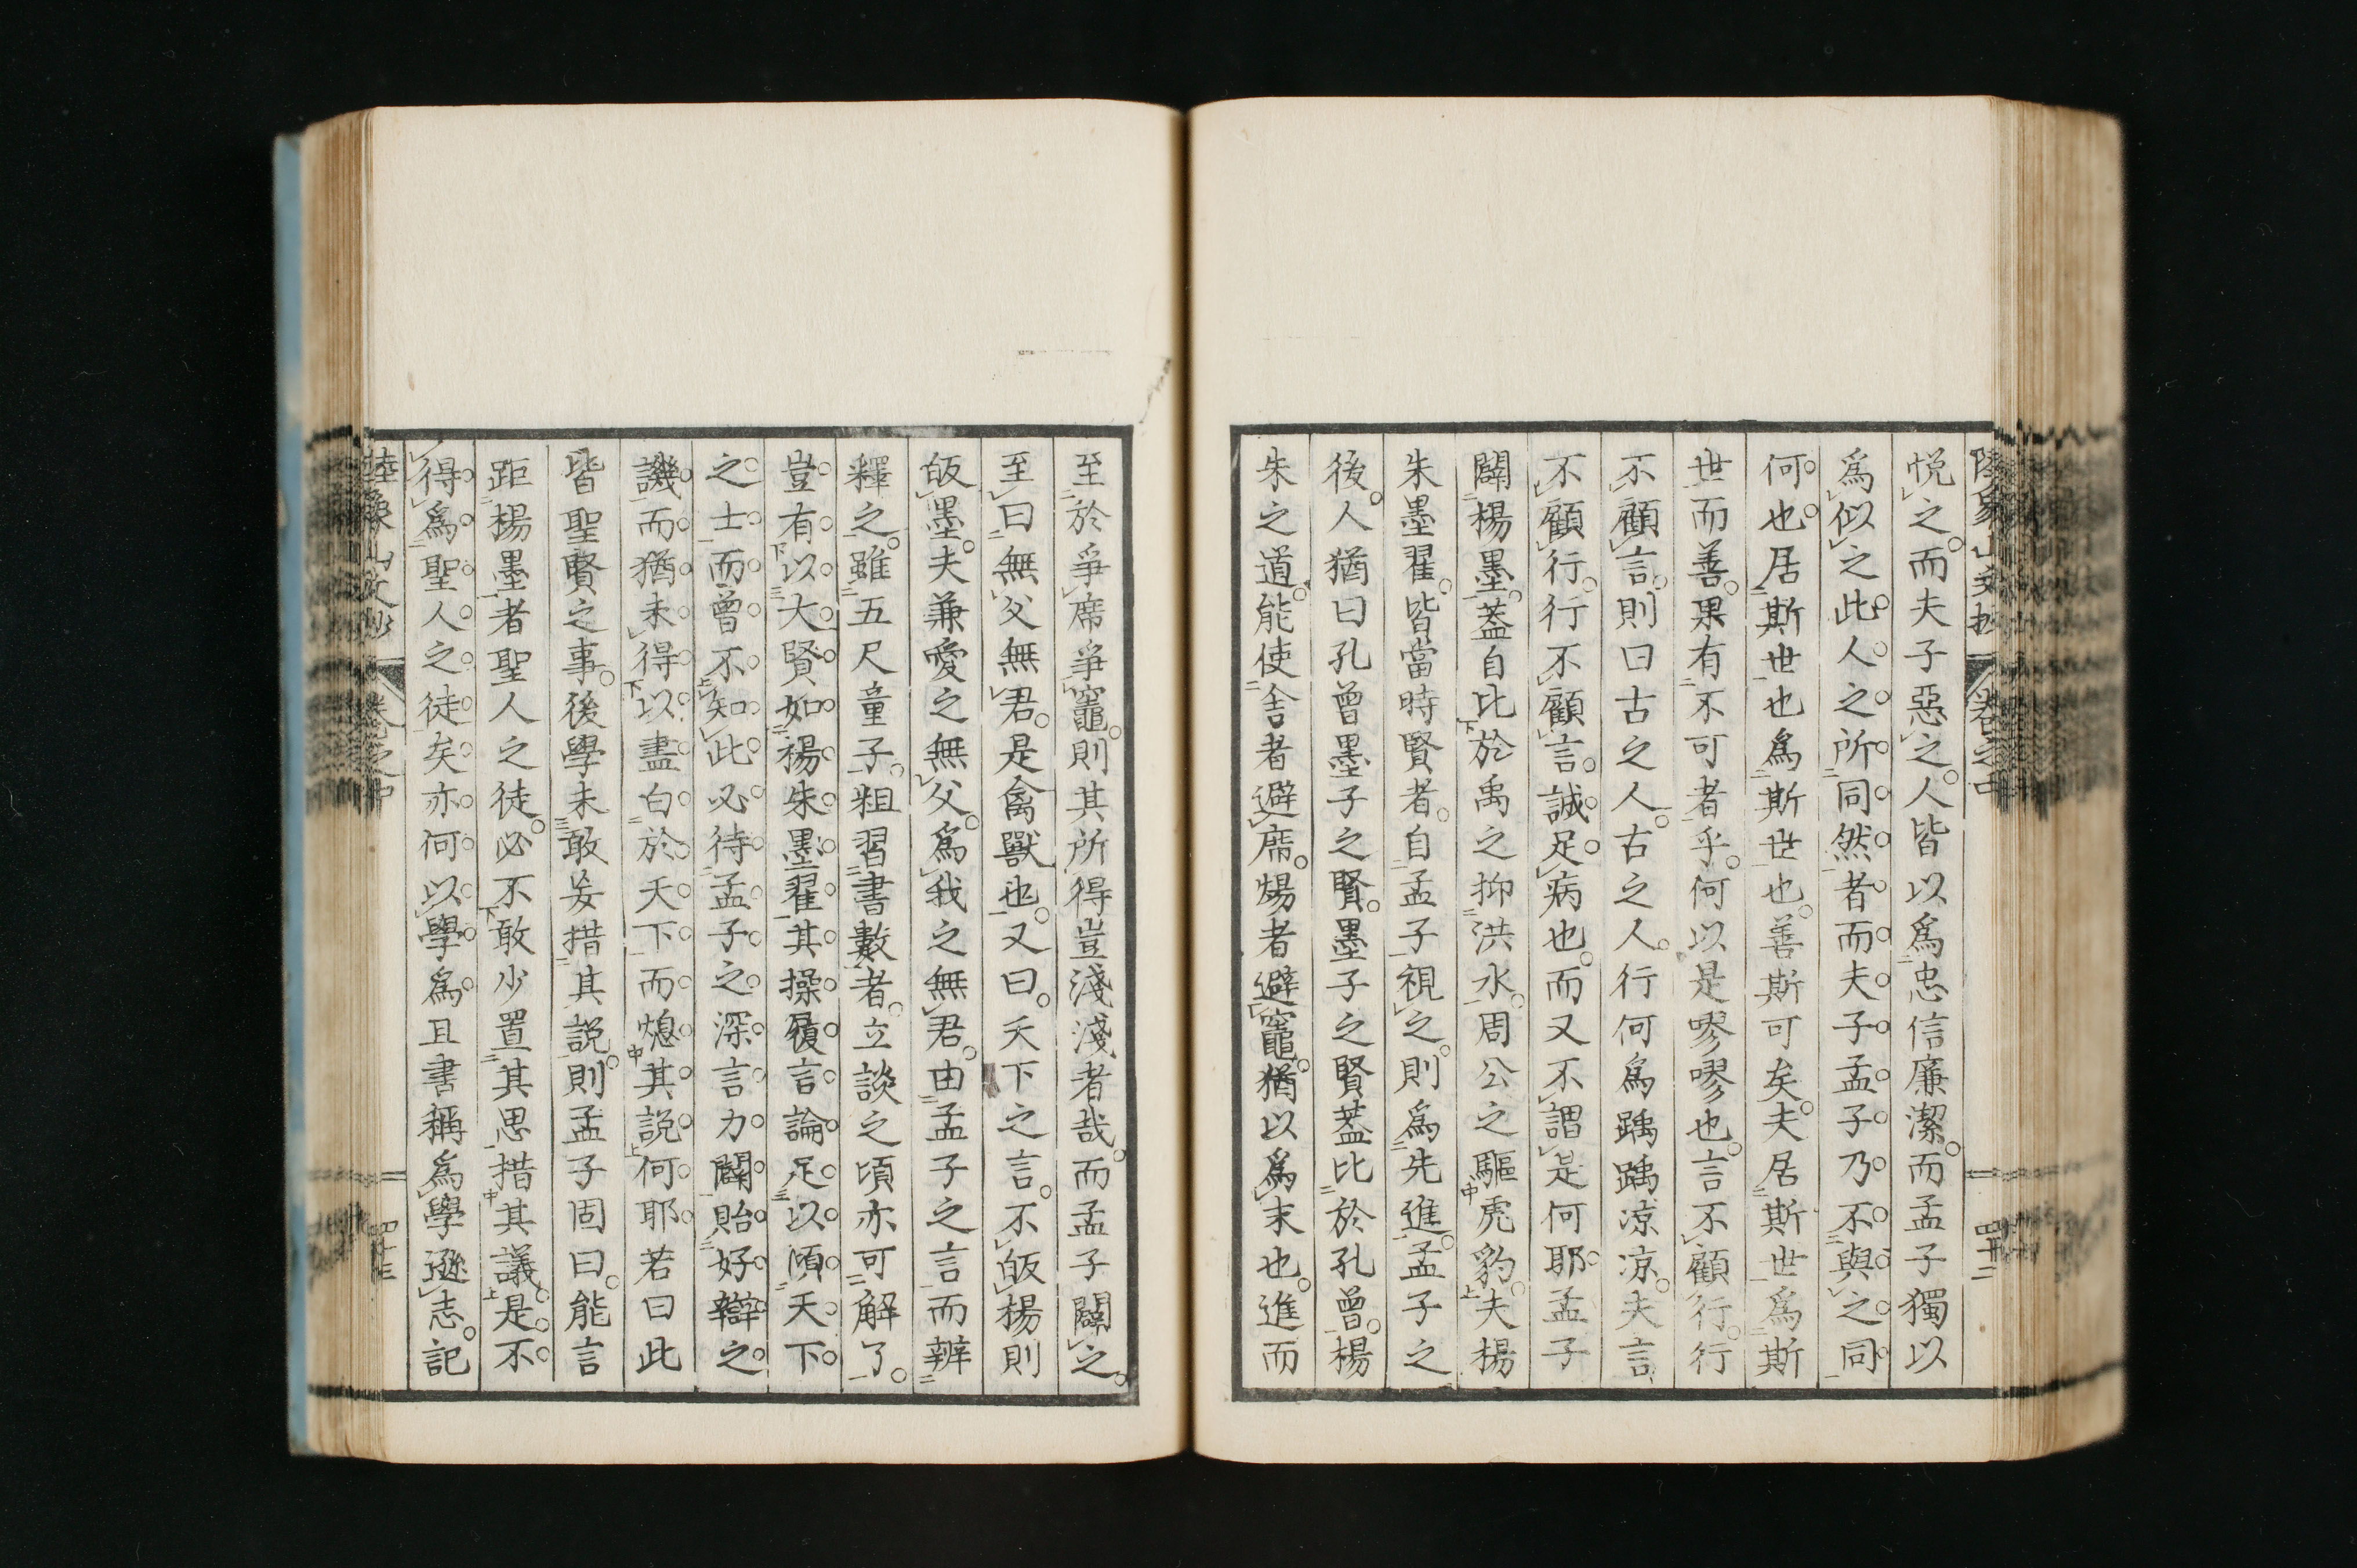 陸象山文抄 卷之中 四十二
悦之。而夫子惡之。人皆以爲忠信廉潔。而孟子獨以
爲似之此人之所同然者而夫子孟子乃不與之同
何也。居斯世也爲斯世也。善斯可矣。夫居斯世爲斯
世而善。果有不可者乎。何以是嘐嘐也。言不顧行。行
不顧言。則曰古之人。古之人。行何爲踽踽凉凉。夫言
不顧行。行不顧言。誠足病也。而又不謂是何耶。孟子
闢楊墨。蓋自比於禹之抑洪水。周公之驅虎豹。夫楊
朱墨翟。皆當時賢者。自孟子視之。則爲先進。孟子之
後。人猶曰孔曾墨子之賢。墨子之賢蓋比於孔曾。楊
朱之道。能使舍者避席。煬者避竈。猶以爲末也。進而
至於爭席爭竈。則其所得豈淺淺者哉。而孟子闢之。
至曰無父無君。是禽獸也。又曰。天下之言。不皈楊則
皈墨。夫兼愛之無父。爲我之無君。由孟子之言而辨
釋之。雖五尺童子。粗習書數者。立談之頃亦可解了。
豈有以大賢如楊朱墨翟其操履言論足以傾天下
之士而曾不知此必待孟子之深言力闢貽好辯之
譏而猶未得以盡白於天下而熄其説何耶若曰此
皆聖賢之事。後學未敢妄措其説。則孟子固曰。能言
距楊墨者聖人之徒。必不敢少置其思措其議。是不
得爲聖人之徒矣亦何以學爲且書稱爲學遜志。記
陸象山文抄 卷之中 四十三